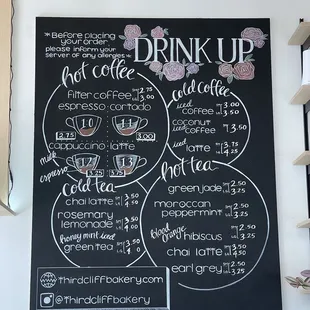 *Before placing
your order
please inform your
server of any allergies*
DRINK UP
hot coffee
filter coffee 2.75
3.00
espresso cortado
10 11
2.75 3.00
cappuccino latte
milk
espresso
3.25 3.75
cold coffee
iced
coffee 3.00
3.50
coconut
coffee 3.50
iced
latte 3.75
4.25
cold tea
chai latte 3.50
4.50
rosemary
lemonade 3.50
4.00
honey mint iced
green tea 3.50
4.0
hot tea
green jade 2.50
3.25
moroccan
peppermint 2.50
3.25
blood
orange
hibiscus 2.50
3.25
chai latte 3.50
4.50
earl grey 2.50
3.25
thirdcliffbakery.com
@thirdcliffbakery